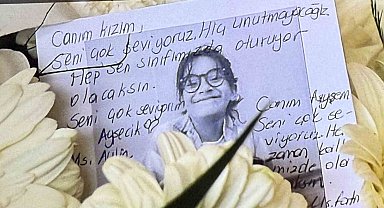 Canım kızım,
Seni çok seviyoruz. Hiç unutmayacağız
Hep sen sınıfımızda oturuyor
olacaksın.
Seni çok seviyorum
Ayşecik
Ms. Aylin
Canım Ayşem
Seni çok se-
viyoruz. He
zaman kal
imizde ola
Ms. Fatm